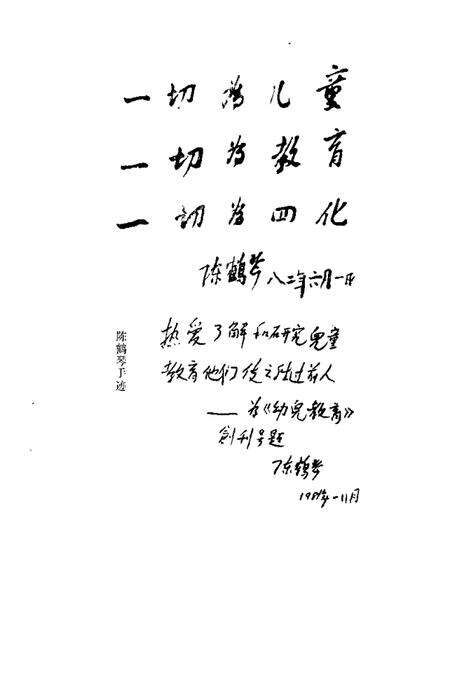 一切為儿童
一切为教育
一切为四化
陈鹤琴 八二年六月一日
热爱了解和研究儿童
教育他们使之胜过前人
——为《幼儿教育》
創刊号题
陈鹤琴
1981年11月
陈鹤琴手迹